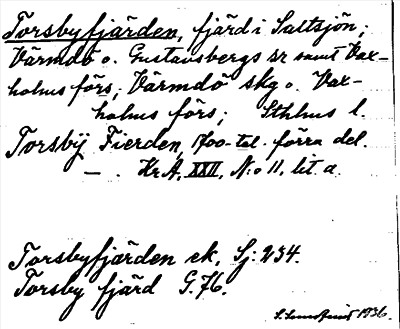 Torsbyfjärden, fjärd i Saltsjön;
Värmdö o. Gustavsbergs sr samt Vax-
holms förs; Värmdö skg o. Vax-
holms förs; Sthlms l.
Torsbÿ Fierden, 1700-tal. förra del.
— . Kr.A. XXII, N:o 11, lit. a.
Torsbyfjärden ek. Sj: 234.
Torsby fjärd G. 76.
1936.